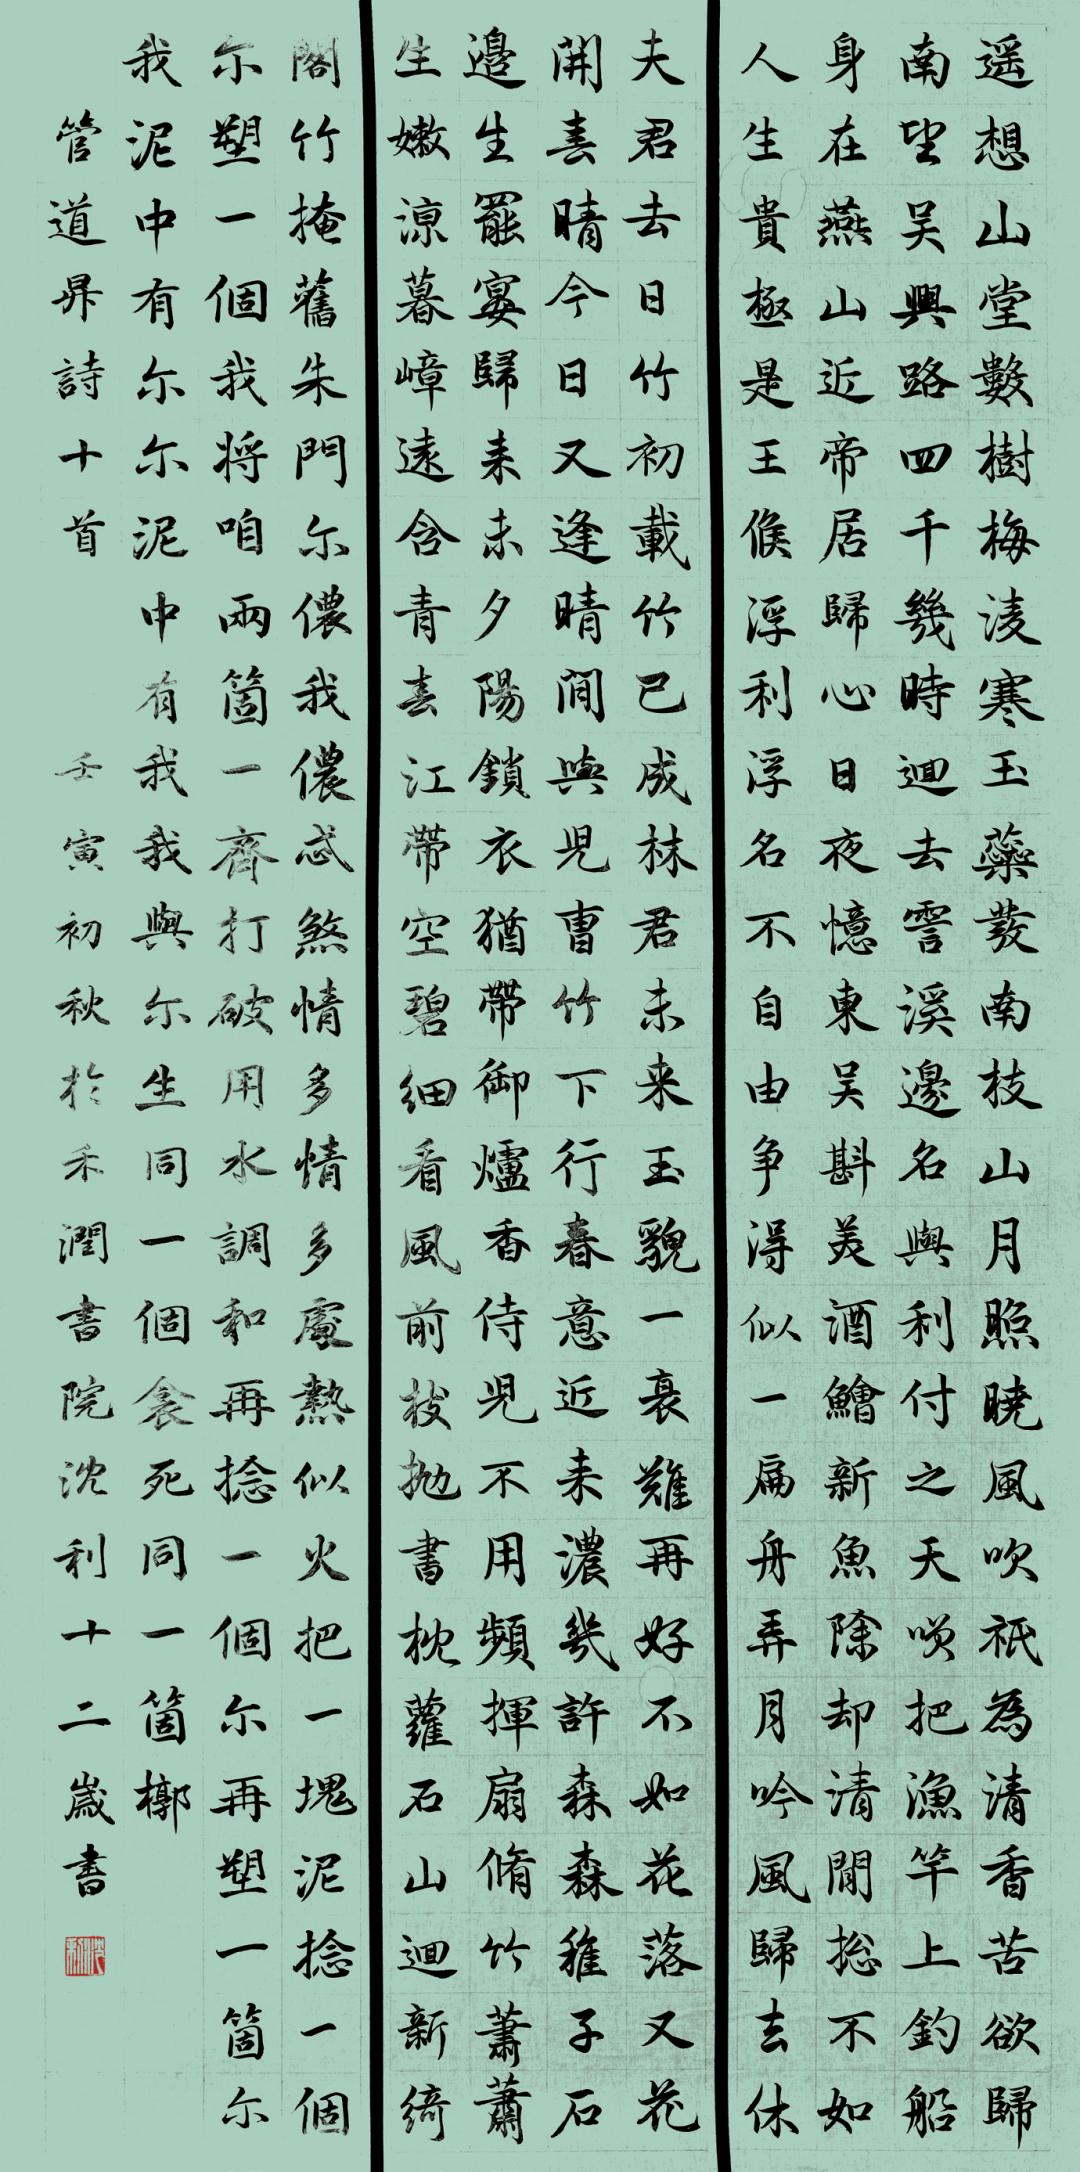 遥想山堂數樹梅淩寒玉蘂發南枝山月照曉風吹祇為清香苦欲歸
南望吴興路四千幾時迴去霅溪邊名與利付之天笑把漁竿上釣船
身在燕山近帝居歸心日夜憶東吴斟美酒鱠新魚除却清閒捴不如
人生貴極是王侯浮利浮名不自由争得似一扁舟弄月吟風歸去休
夫君去日竹初栽竹已成林君未来玉貌一衰難再好不如花落又花
開喜晴今日又逢晴閒與兒曹竹下行春意近来濃幾許森森稚子石
邊生罷宴歸来未夕陽鎖衣猶帶御爐香侍兒不用頻揮扇脩竹蕭蕭
生嫩涼暮嶂遠含青春江帶空碧細看風前枝抛書枕蘿石山迴新綺
閣竹掩舊朱門尔儂我儂忒煞情多情多處熱似火把一塊泥捻一個
尔塑一個我將咱兩箇一齊打破用水調和再捻一個尔再塑一箇尔
我泥中有尔尔泥中有我我與尔生同一個衾死同一箇槨
管道昇詩十首 壬寅初秋於禾潤書院沈利十二歲書